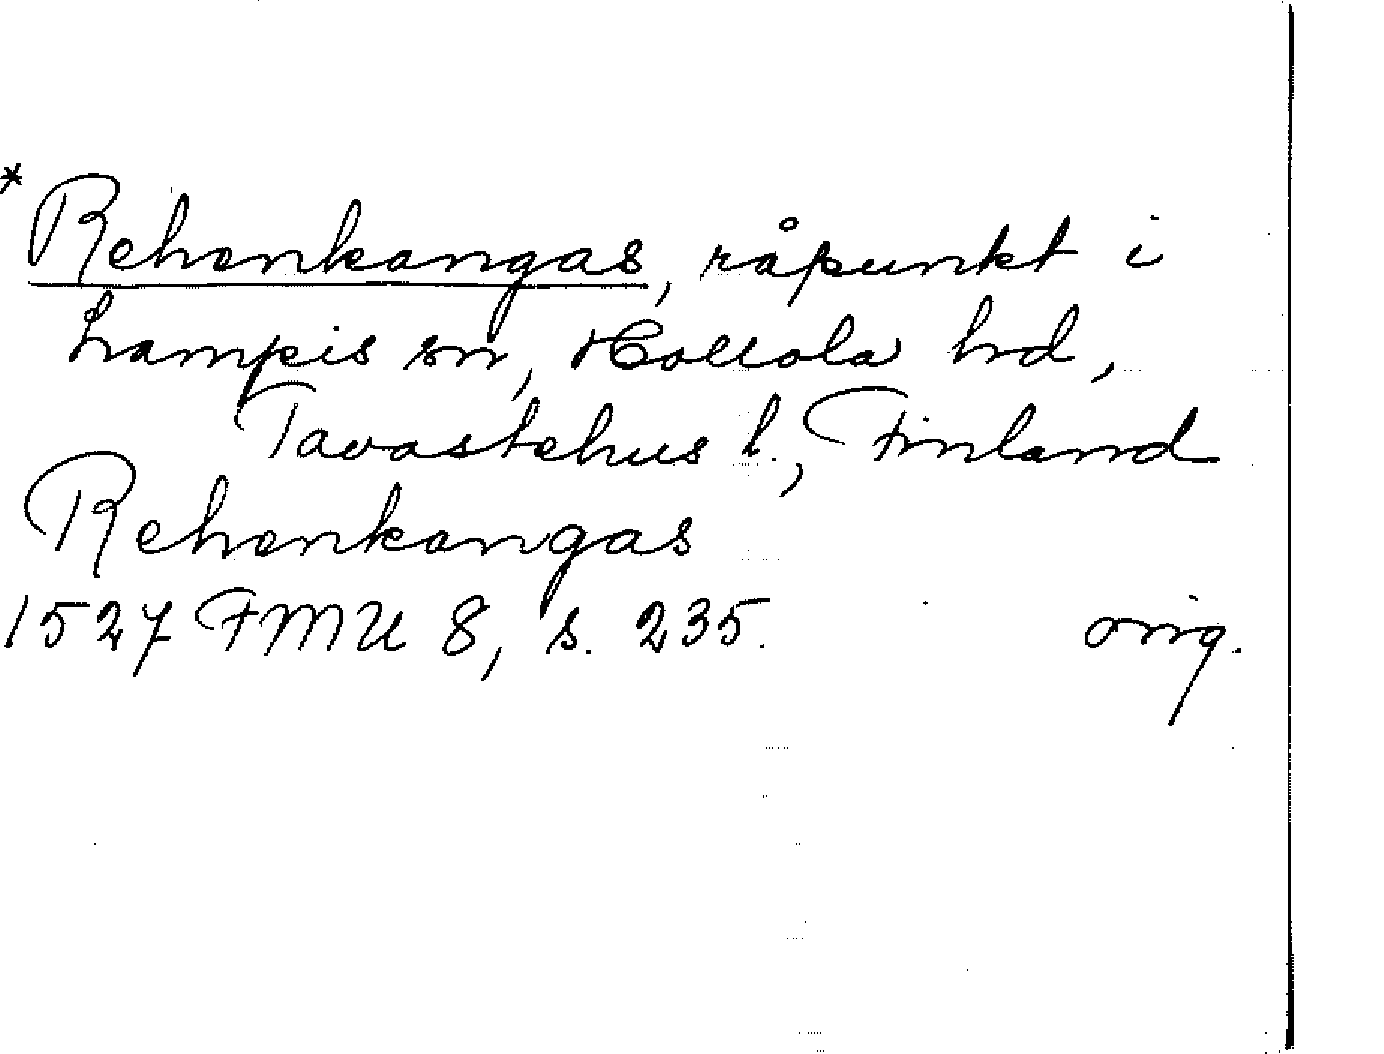 *Rehenkangas, råpunkt i
Lampis sn, Hollola hd,
Tavastehus l., Finland
Rehenkangas
1527 FMU 8, s. 235. orig.